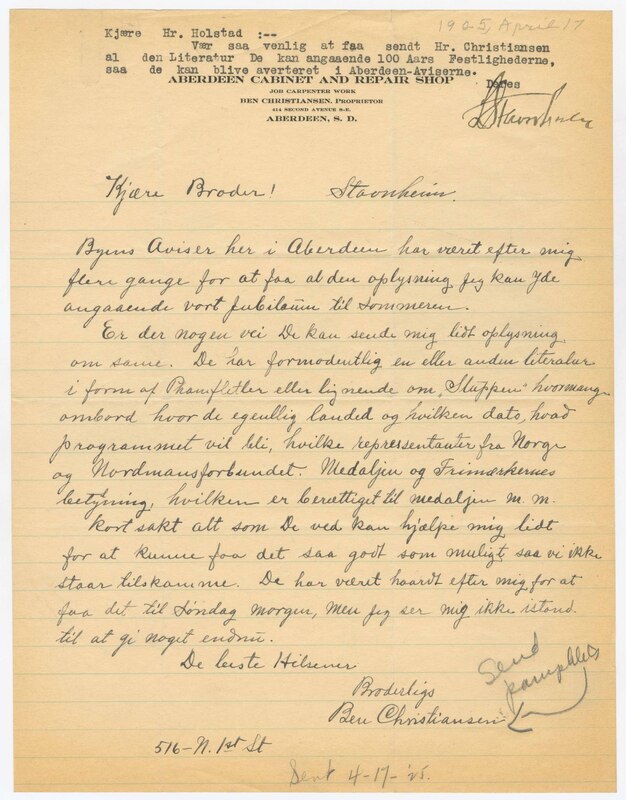 1925, April 17
Kjære Hr. Holstad :--
Vær saa venlig at faa sendt Hr. Christiansen
al den Literatur De kan angaaende 100 Aars Festlighederne,
saa de kan blive averteret i Aberdeen-Aviserne.
Deres
ABERDEEN CABINET AND REPAIR SHOP
JOB CARPENTER WORK
BEN CHRISTIANSEN, PROPRIETOR
414 SECOND AVENUE S.E.
ABERDEEN, S. D.
Kjære Broder! Stavnheim.
Byens Aviser her i Aberdeen har været efter mig
flere gange for at faa al den oplysning jeg kan yde
angaaende vort Jubilæum til sommeren.
Er der nogen vei De kan sende mig lidt oplysning
om same. De har formodentlig en eller anden literatur
i form af Phamfletler eller lignende om "Sluppen" hvormange
ombord hvor de egentlig landed og hvilken dato, hvad
programmet vil bli, hvilke repressentanter fra Norge
og Nordmansforbundet. Medaljen og Frimærkernes
betydning, hvilken er berettiget til medaljen m. m.
Kort sakt alt som De ved kan hjælpe mig lidt
for at kunne faa det saa godt som muligt saa vi ikke
staar tilskamme. De har været haardt efter mig for at
faa det til Søndag morgen, men jeg ser mig ikke istand
til at gi noget endnu.
De beste Hilsener
Broderligs
Ben Christiansen
Send
pamphlets
516-N. 1st St
Sent 4-17-'25.